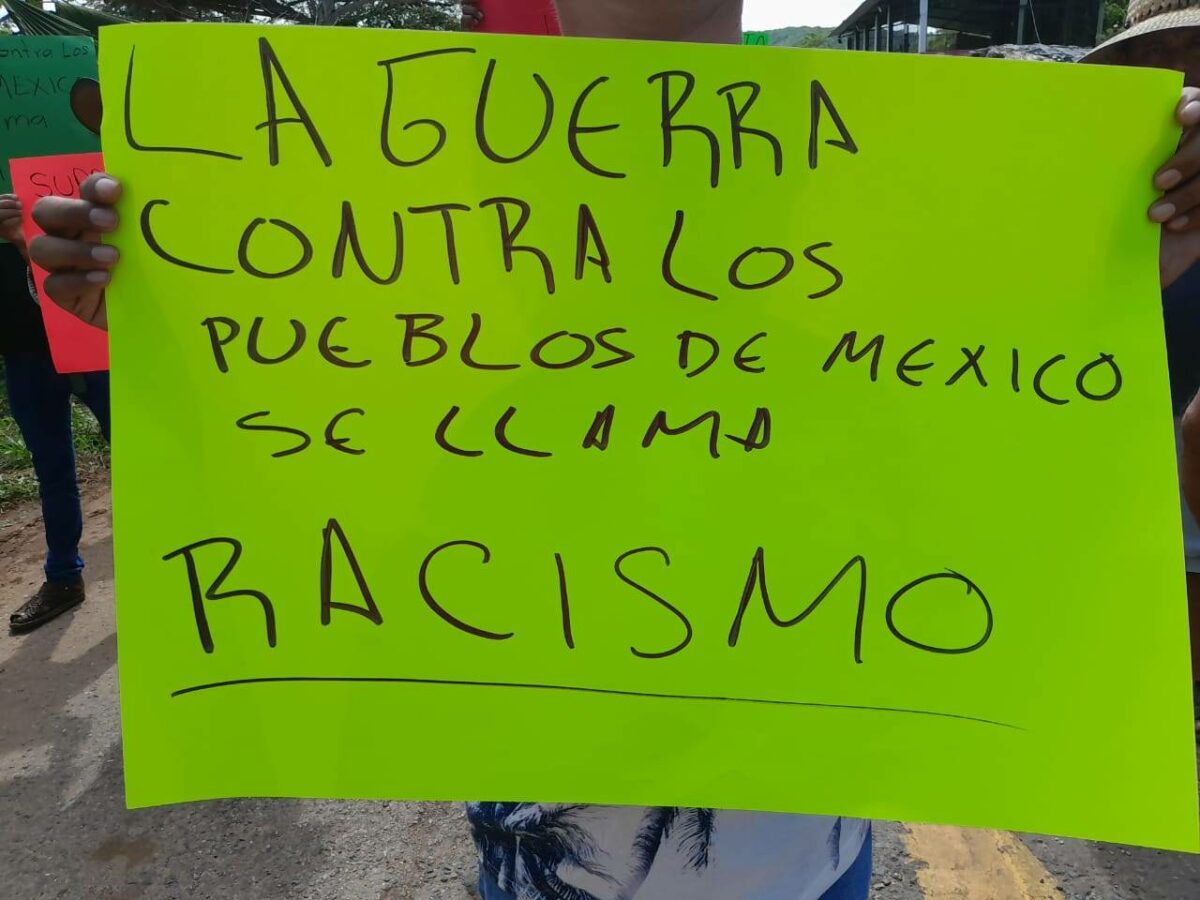 LA GUERRA
CONTRA LOS
PUEBLOS DE MEXICO
SE LLAMA
RACISMO
contra Los
MEXIC